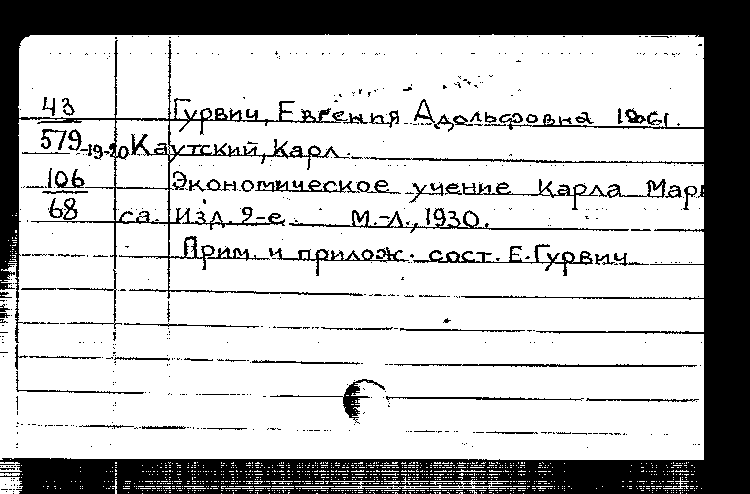 43 Гурвич, Евгения Адольфовна 1861.
579-19-20 Каутский, Карл.
106 Экономическое учение Карла Марк
68 са. Изд. 2-е. М.-Л., 1930.
Прим. и прилож. сост. Е. Гурвич